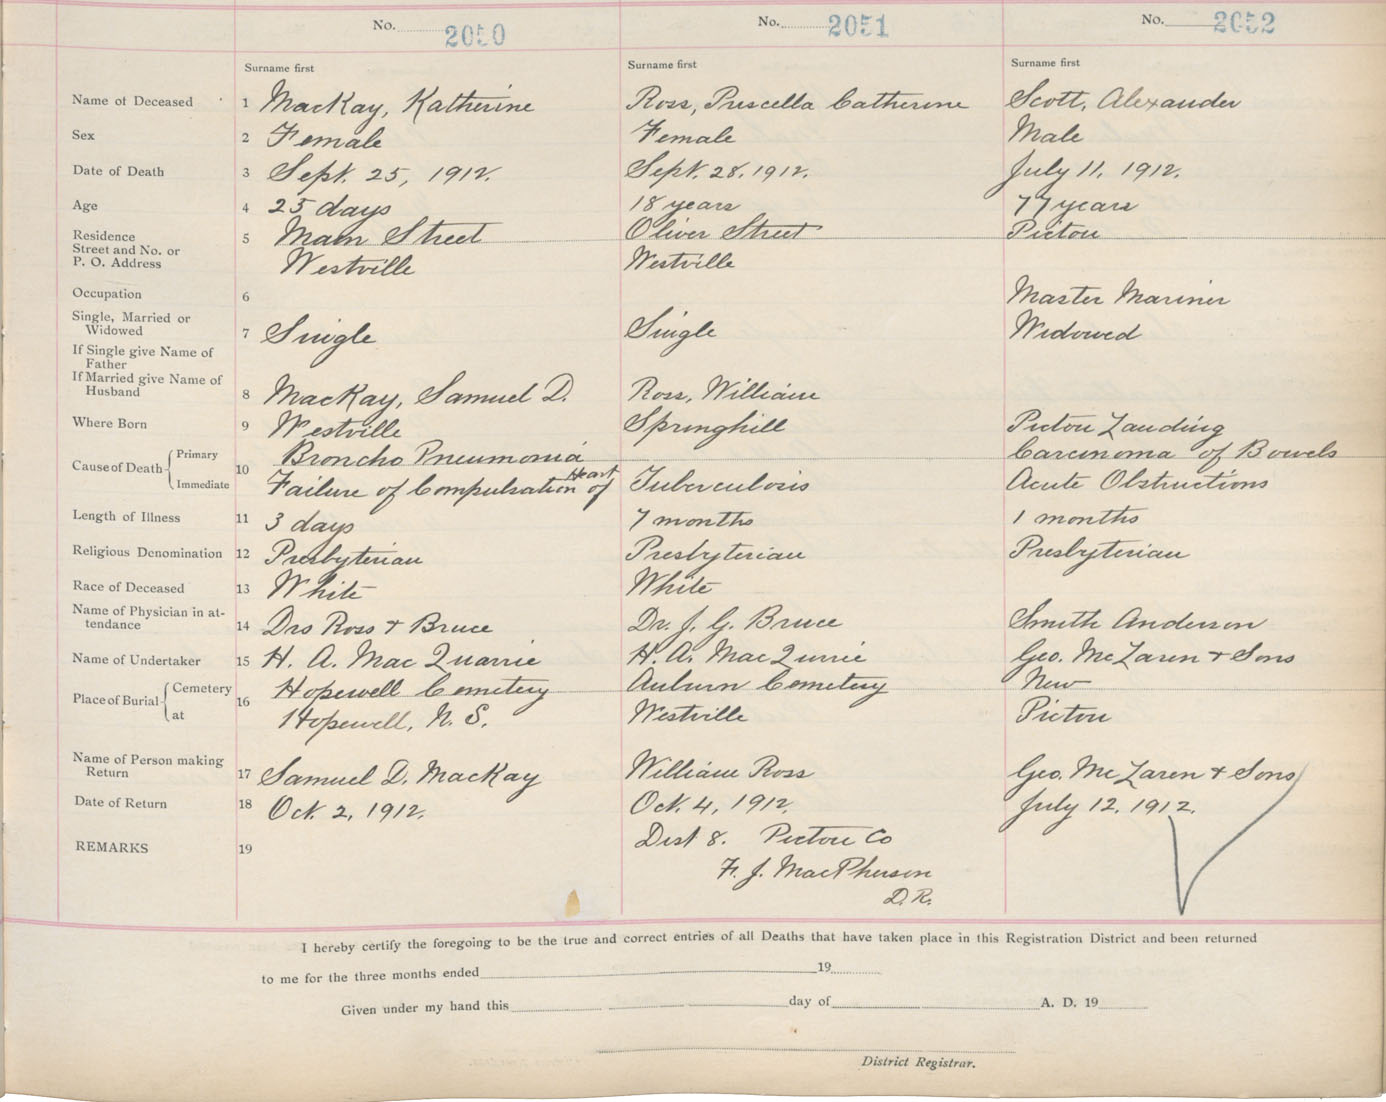 No. 2050 No. 2051 No. 2052
Surname first Surname first Surname first
Name of Deceased 1 MacKay, Katherine Ross, Prescella Catherine Scott, Alexander
Sex 2 Female Female Male
Date of Death 3 Sept. 25, 1912. Sept. 28, 1912. July 11, 1912.
Age 4 25 days 18 years 77 years
Residence 5 Main Street Oliver Street Pictou
Street and No. or
P. O. Address Westville Westville
Occupation 6 Master Mariner
Single, Married or
Widowed 7 Single Single Widowed
If Single give Name of
Father
If Married give Name of
Husband 8 MacKay, Samuel D. Ross, William
Where Born 9 Westville Springhill Pictou Landing
Cause of Death Primary 10 Broncho Pneumonia Carcinoma of Bowels
Immediate Failure of Compulsation of Heart Tuberculosis Acute Obstructions
Length of Illness 11 3 days 7 months 1 months
Religious Denomination 12 Presbyterian Presbyterian Presbyterian
Race of Deceased 13 White White
Name of Physician in at-
tendance 14 Drs Ross + Bruce Dr. J. G. Bruce Smith Anderson
Name of Undertaker 15 H. A. MacQuarrie H. A. MacQurrie Geo. McLaren + Sons
Place of Burial Cemetery 16 Hopewell Cemetery Auburn Cemetery New
at Hopewell, N. S. Westville Pictou
Name of Person making
Return 17 Samuel D. MacKay William Ross Geo. McLaren + Sons
Date of Return 18 Oct. 2, 1912. Oct. 4, 1912. July 12, 1912.
REMARKS 19 Dist 8. Pictou Co
F. J. MacPherson
D. R.
I hereby certify the foregoing to be the true and correct entries of all Deaths that have taken place in this Registration District and been returned
to me for the three months ended 19
Given under my hand this day of A. D. 19
District Registrar.